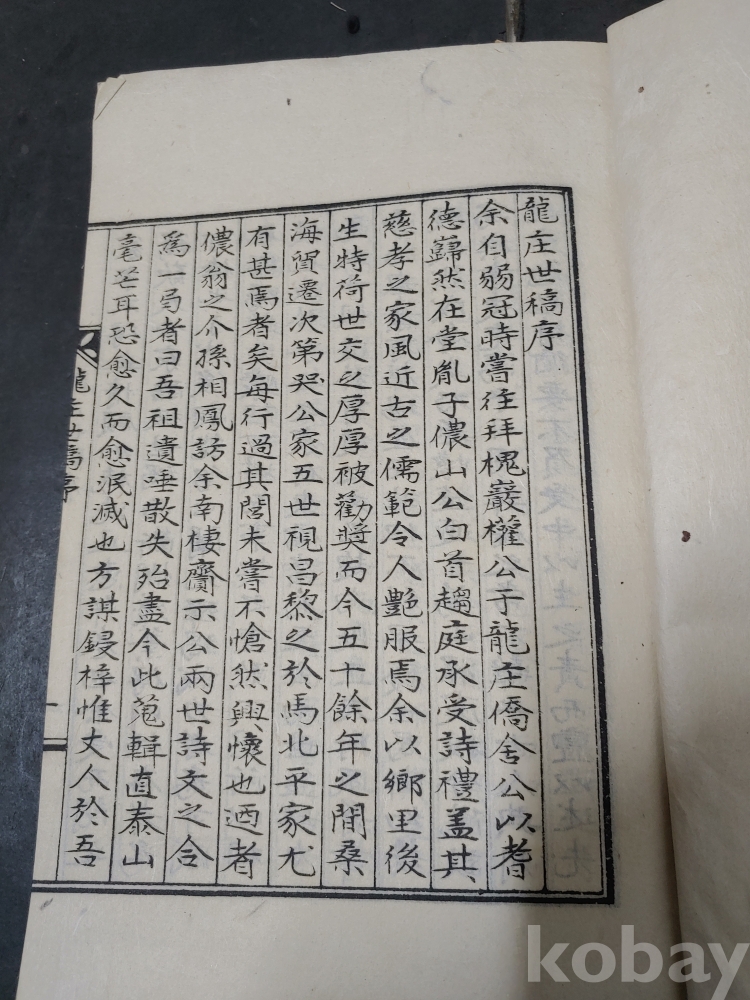 龍庄世稿序
余自弱冠時嘗往拜槐巖權公于龍庄僑舍公以耆
德巋然在堂胤子儂山公白首趨庭承受詩禮盖其
慈孝之家風近古之儒範令人艶服焉余以鄉里後
生特荷世交之厚厚被勸獎而今五十餘年之間桑
海貿遷次第哭公家五世視昌黎之於馬北平家尤
有甚焉者矣每行過其閭未嘗不愴然興懷也迺者
儂翁之介孫相鳳訪余南棲齎示公兩世詩文之合
爲一局者曰吾祖遺唾散失殆盡今此蒐輯直泰山
毫芒耳恐愈久而愈泯滅也方謀鋟梓惟丈人於吾
龍庄世稿序
一
kobay